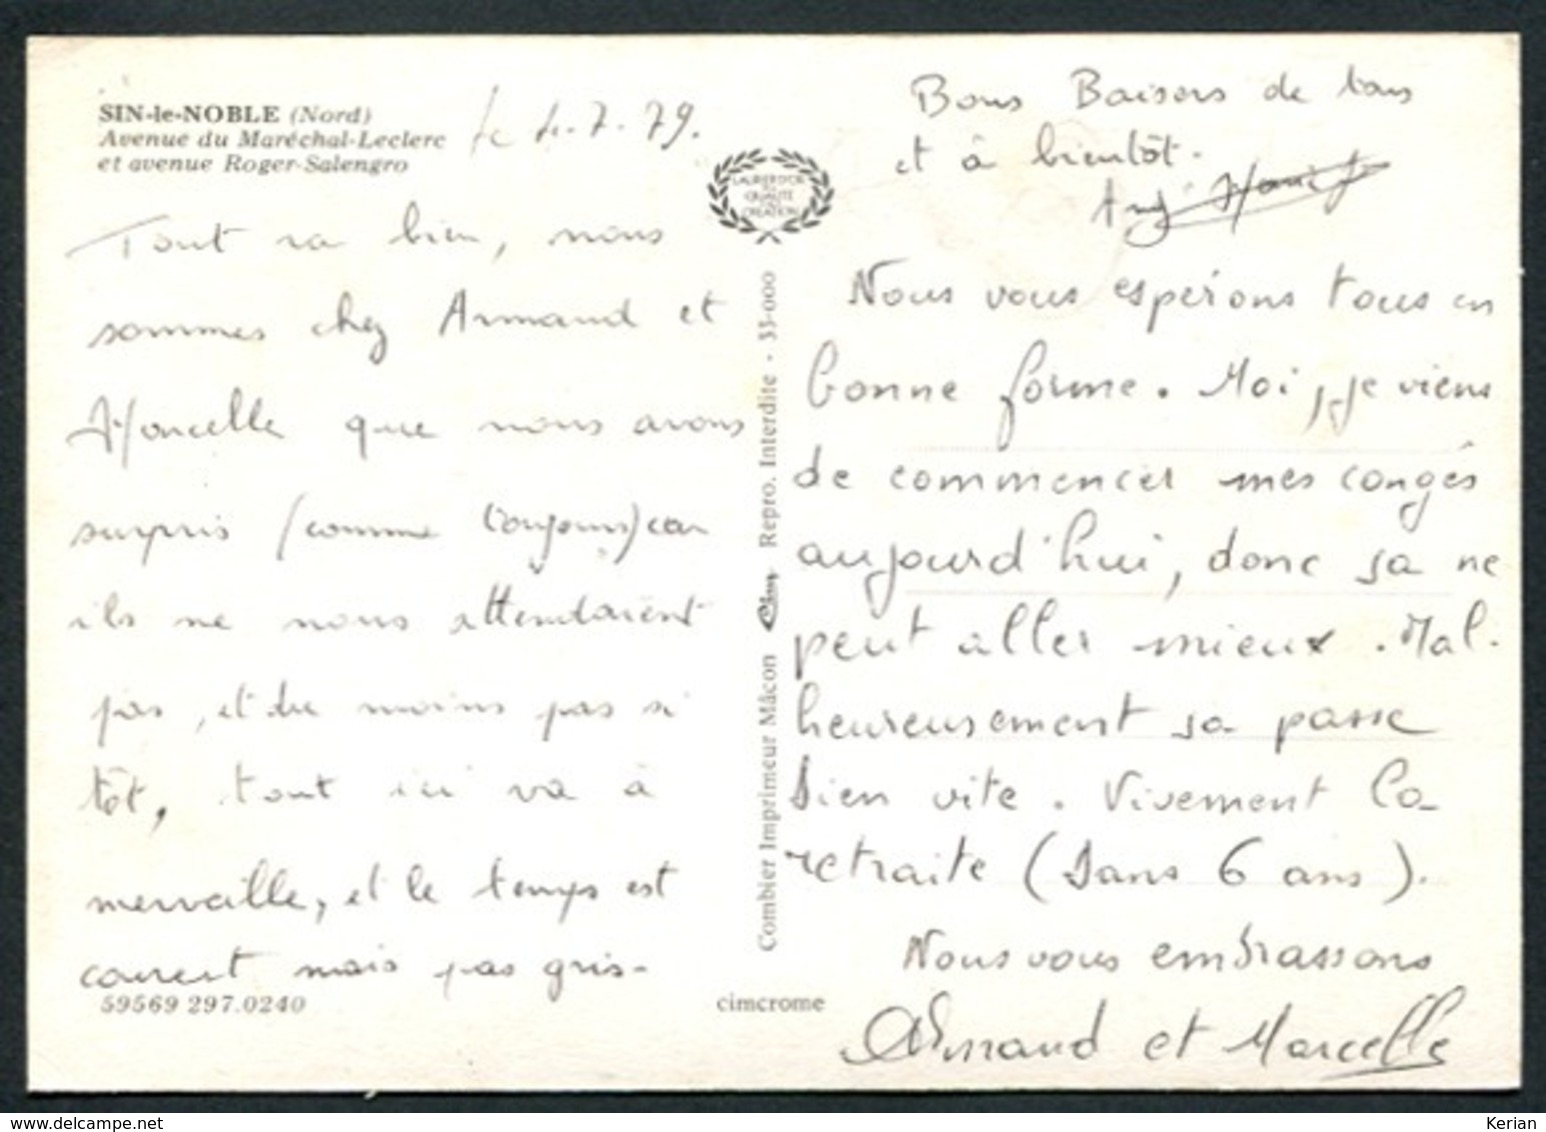 SIN-le-NOBLE (Nord)
Avenue du Maréchal-Leclerc
et avenue Roger-Salengro
le 1.7.79.
Tout va bien, nous
sommes chez Armand et
Marcelle que nous avons
surpris (comme toujours) car
ils ne nous attendaient
pas, et du moins pas si
tôt, tout ici va à
merveille, et le temps est
couvert mais pas gris-
59569 297.0240
LAURIER D'OR
DE
QUALITÉ
CRÉATION
Combier Imprimeur Mâcon Cim Repro. Interdite - 33-000
cimcrome
Bons Baisers de tous
et à bientôt.
Nous vous espérons tous en
bonne forme. Moi, je viens
de commencer mes congés
aujourd'hui, donc sa ne
peut aller mieux. Mal-
heureusement sa passe
bien vite. Vivement la
retraite (dans 6 ans).
Nous vous embrassons
Armand et Marcelle
Kerian